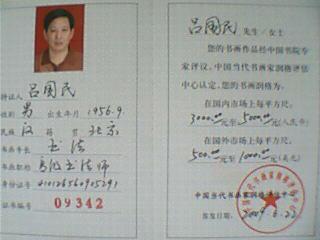 持证人 吕国民
性别 男 出生年月 1956.9
民族 汉 籍贯 北京
书法
书画职称 高级书法师
身份证号
证书编号 09342
吕国民 先生/女士
您的书画作品经中国书院专
家评议，中国当代书画家润格评估
中心认定，您的书画润格为：
在国内市场上每平方尺：
3000.00元至5000.00元(人民币)
在国外市场上每平方尺：
500.00元至1000.00元(美元)
中国当代书画家润格评估中心
签发日期 2009.6.23